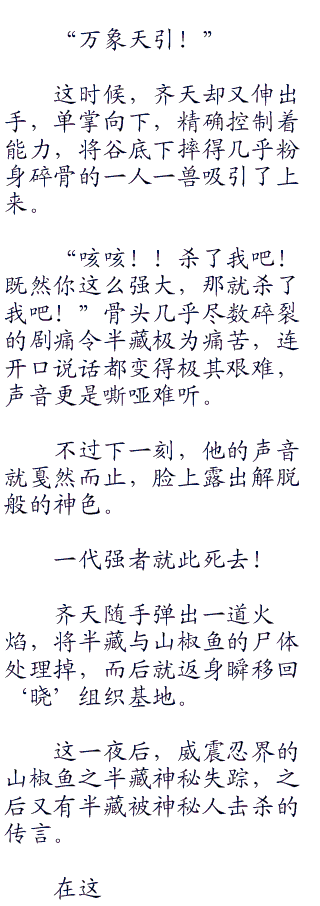 “万象天引！”
这时候，齐天却又伸出
手，单掌向下，精确控制着
能力，将谷底下摔得几乎粉
身碎骨的一人一兽吸引了上
来。
“咳咳！！杀了我吧！
既然你这么强大，那就杀了
我吧！”骨头几乎尽数碎裂
的剧痛令半藏极为痛苦，连
开口说话都变得极其艰难，
声音更是嘶哑难听。
不过下一刻，他的声音
就戛然而止，脸上露出解脱
般的神色。
一代强者就此死去！
齐天随手弹出一道火
焰，将半藏与山椒鱼的尸体
处理掉，而后就返身瞬移回
‘晓’组织基地。
这一夜后，威震忍界的
山椒鱼之半藏神秘失踪，之
后又有半藏被神秘人击杀的
传言。
在这